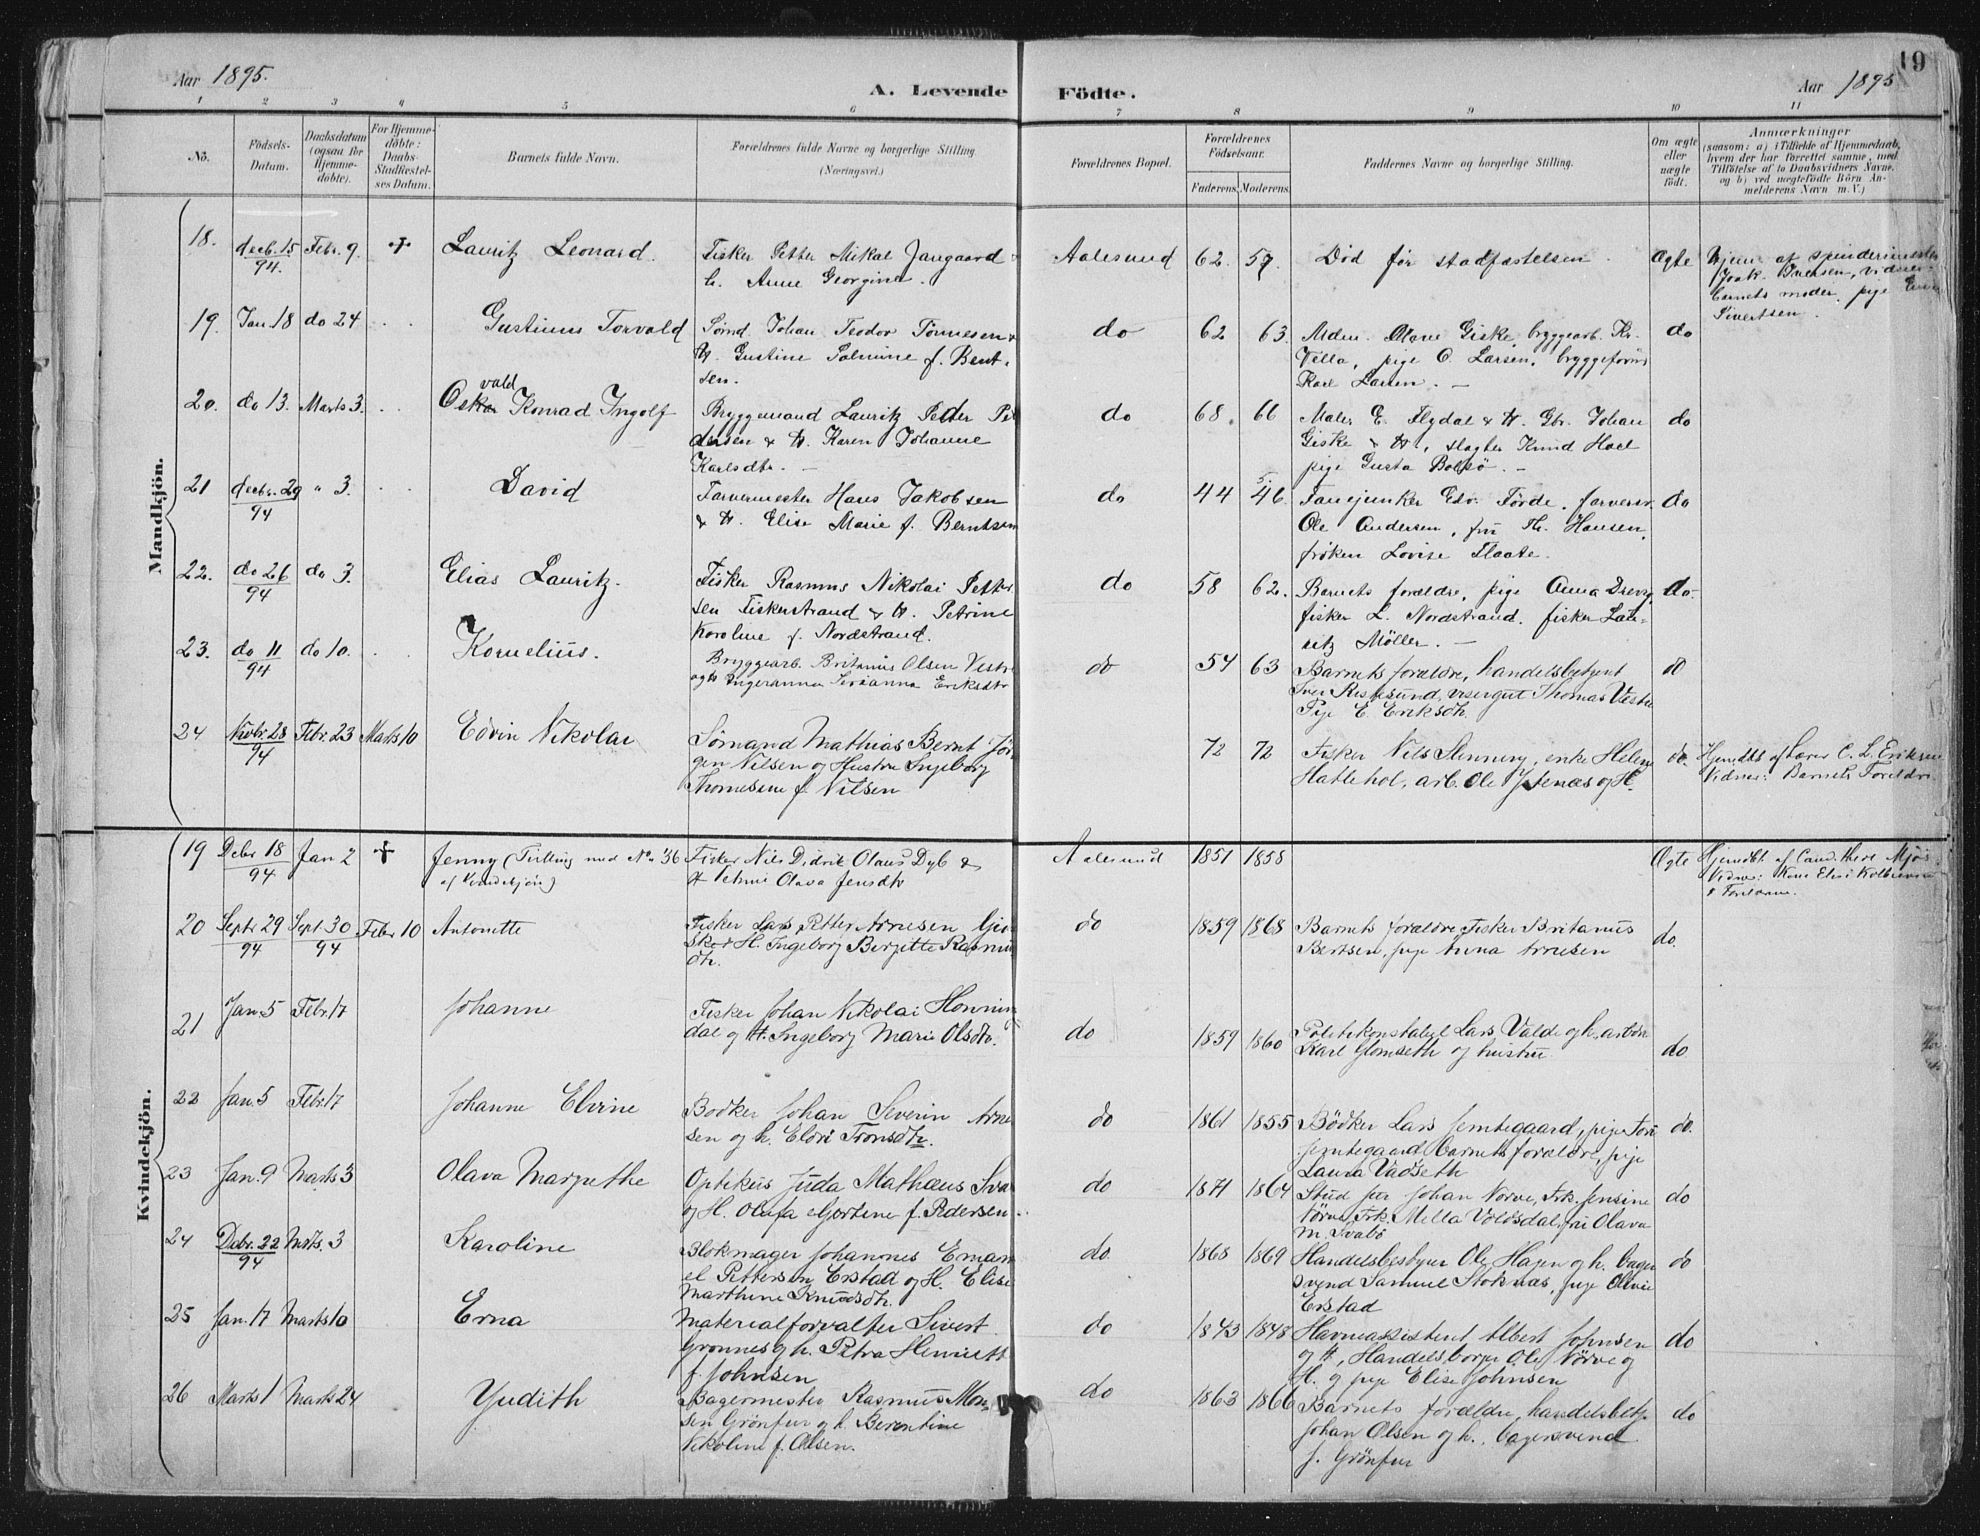 19
Aar 1895.
A. Levende Födte.
Aar 1895
1 2 3 4 5 6 7 8 9 10 11
No.
Födsels-Datum.
Daabsdatum (ogsaa for Hjemme-döbte).
For Hjemme-döbte: Daabs-Stadfestel-ses Datum.
Barnets fulde Navn.
Forældrenes fulde Navne og borgerlige Stilling.
(Næringsvei.)
Forældrenes Bopæl.
Forældrenes Födselsaar.
Faderens. Moderens.
Faddernes Navne og borgerlige Stilling.
Om ægte eller uægte født.
Anmærkninger
(saasom: a) i Tilfælde af Hjemmedaab, hvem der har forrettet samme, med Tilföielse af to Daabsvidners Navne. og b) ved uægtefödte Börn An-melderens Navn m. V.)
Mandkjön.
18. decb. 15 94. Febr. 9. + Lauritz Leonard. Fisker Petter Mikal Jangaard
h. Anne Georgine. Aalesund 62. 57 Död før stadfæstelsen. Ægte Hjem. af spinderimester
Joak. Iversen, vidner: barnets moder, pige
Sivertsen.
19. Jan. 18 do 24 Gustinus Torvald Sømd. Johan Teodor Tönnesen &
H. Gustine Palmine f. Bent-
sen. do 62 63. Mdm. Olave Giske, bryggearb. Kr.
Villa, pige O. Larsen, bryggeform
Karl Larsen. do
20. do 13. Marts 3. Oskar vald Konrad Ingolf Bryggemand Lauritz Peder Pe
dersen & H. Karen Johanne
Karlsdtr. do 68. 66 Maler E. Flydal & H. Gbr. Johan
Giske & H., slagter Knud Hoel
pige Gusta Bolsö. do
21 decbr. 29 94 " 3. David Farvermester Hans Jakobsen
& H. Elise Marie f. Berntsen do 44 46. 5. Fanejunker Edv. Förde, farversv.
Ole Andersen, fru Th. Hansen,
fröken Lovise Flaate. do
22. do 26 94 do 3. Elias Lauritz. Fisker Rasmus Nikolai Petter
sen Fiskerstrand & H. Petrine
Karoline f. Nordstrand. do 58 62. Barnets forældre, pige Anna Drevs,
fisker L. Nordstrand. fisker Lau-
ritz Möller. do.
23. do 11 94 do 10. Kornelius. Bryggearb. Britanus Olsen Vestre
og h Ingeranna Serianna Eriksdtr do 54 63 Barnets forældre, handelsbetjent
Iver Restesund, visergut Thomas Vestre
Pige E. Eriksdtr. do
24 Novbr. 28 94 Febr. 23 Marts 10 Edvin Nikolai Sömand Mathias Bernt Jör
gen Nilsen og Hustru Ingeborg
Thomesine f. Nilsen 72 72 Fisker Nils Slenning, enke Helene
Hatlehol, arb. Ole Ytenæs og H. do. Hjemdbt af Lærer C. L. Eriksen
Vidner: Barnets Foreldre.
Kvindekjön.
19 Decbr 18 94 Jan 2 + Jenny (Tvilling med No. 36
af Kvindekjön) Fisker Nils Didrik Olaus Dyb &
H Olava Jensdtr Aalesund 1851 1858 Ægte Hjemdbt. af Cand. theol. Mjös.
Vidner: Elise
& Foreldrene.
20 Septr 29 94 Sept. 30 94 Febr 10 Antonette Fisker Lars Petter Arnesen
H. Ingeborg Bergitte Rasmus
dtr. do 1859 1868 Barnets forældre Fisker Britanus
Bertsen, pige Anna Arnesen do.
21 Jan. 5 Febr. 17 Johanne Fisker Johan Nikolai Honnin
dal og H. Ingeborg Marie Olsdtr. do 1859 1860 Politikonstabel Lars Valde og h, arbm
Karl Glomseth og hustru do
22 Jan. 5 Febr. 17 Johanne Elvine Bödker Johan Severin Arne
sen og h. Eldri Tronsdtr. do 1861 1855 Bödker Lars Jemtegaard, pige Tori
Jemtegaard Barnets forældre, pige
Laura Vadseth do.
23 Jan. 9 Marts 3 Olava Margrethe Optikus Juda Mathæus Sva
og H. Olufa Gortene f. Pedersen do 1871 1864 Stud jur Johan Nörve, Frk. Jensine
Nörve, Frk. Milla Voldsdal, fru Olava
M. Svabö do
24 Decbr. 22 94 Mrts. 3 Karoline Blokmager Johannes Eman
el Pettersen Erstad og H. Elise
Marthine Knudsdtr. do. 1868 1869 Handelsbestyrer Ole Hagen og h. bager
svend Samuel Stoknæs, pige Olivie
Erstad do
25 Jan. 17 Marts 10 Erna Materialforvalter Sivert
Grönnes og h. Petra Henriette
f. Johnsen do 1843 1848 Havneassistent Albert Johnsen
og H, Handelsborger Ole Nörve og
H. og pige Elise Johnsen do
26 Marts 1 Marts 24 Yudith Bagermester Rasmus Mon-
sen Grönfur og h. Berentine
Nikoline f. Olsen. do 1863 1866 Barnets forældre, handelsbetj.
Johan Olsen og h., bagersvend
J. Grönfur do